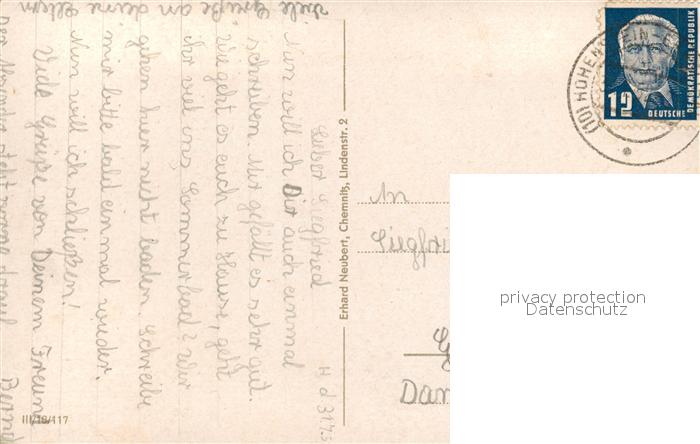 Lieber Siegfried
Nun will ich Dir auch einmal
schreiben. Mir gefällt es sehr gut.
Wie geht es euch zu Hause, geht
ihr viel ins Sommerbad? Wir
gehen hier nicht baden. Schreibe
mir bitte bald einmal wieder.
Nun will ich schließen!
Viele Grüße von Deinem Freund
Bernd
Viele Grüße an deine Eltern
III/18/117
Erhard Neubert, Chemnitz, Lindenstr. 2
An
Siegfri
Dan
(10) HOHEN
12
DEUTSCHE
DEMOKRATISCHE REPUBLIK
privacy protection
Datenschutz